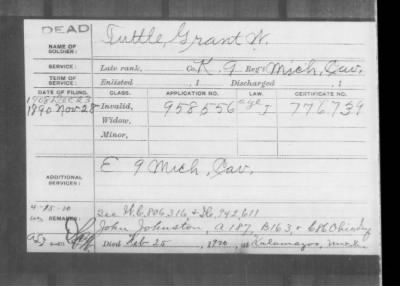 DEAD
NAME OF SOLDIER: Tuttle, Grant W.
SERVICE: Late rank, Co. K. 9 Reg't Mich. Cav.
TERM OF SERVICE: Enlisted Discharged
DATE OF FILING. CLASS. APPLICATION NO. LAW. CERTIFICATE NO.
1908 Dec 23
1890 Nov. 28 Invalid, 958556 age 776739
Widow,
Minor,
ADDITIONAL SERVICES: E 9 Mich. Cav.
REMARKS: See
John Johnston, A 187, B 163, & C 86 Ohio Inf
Died Feb 25, 1920, at Kalamazoo, Mich